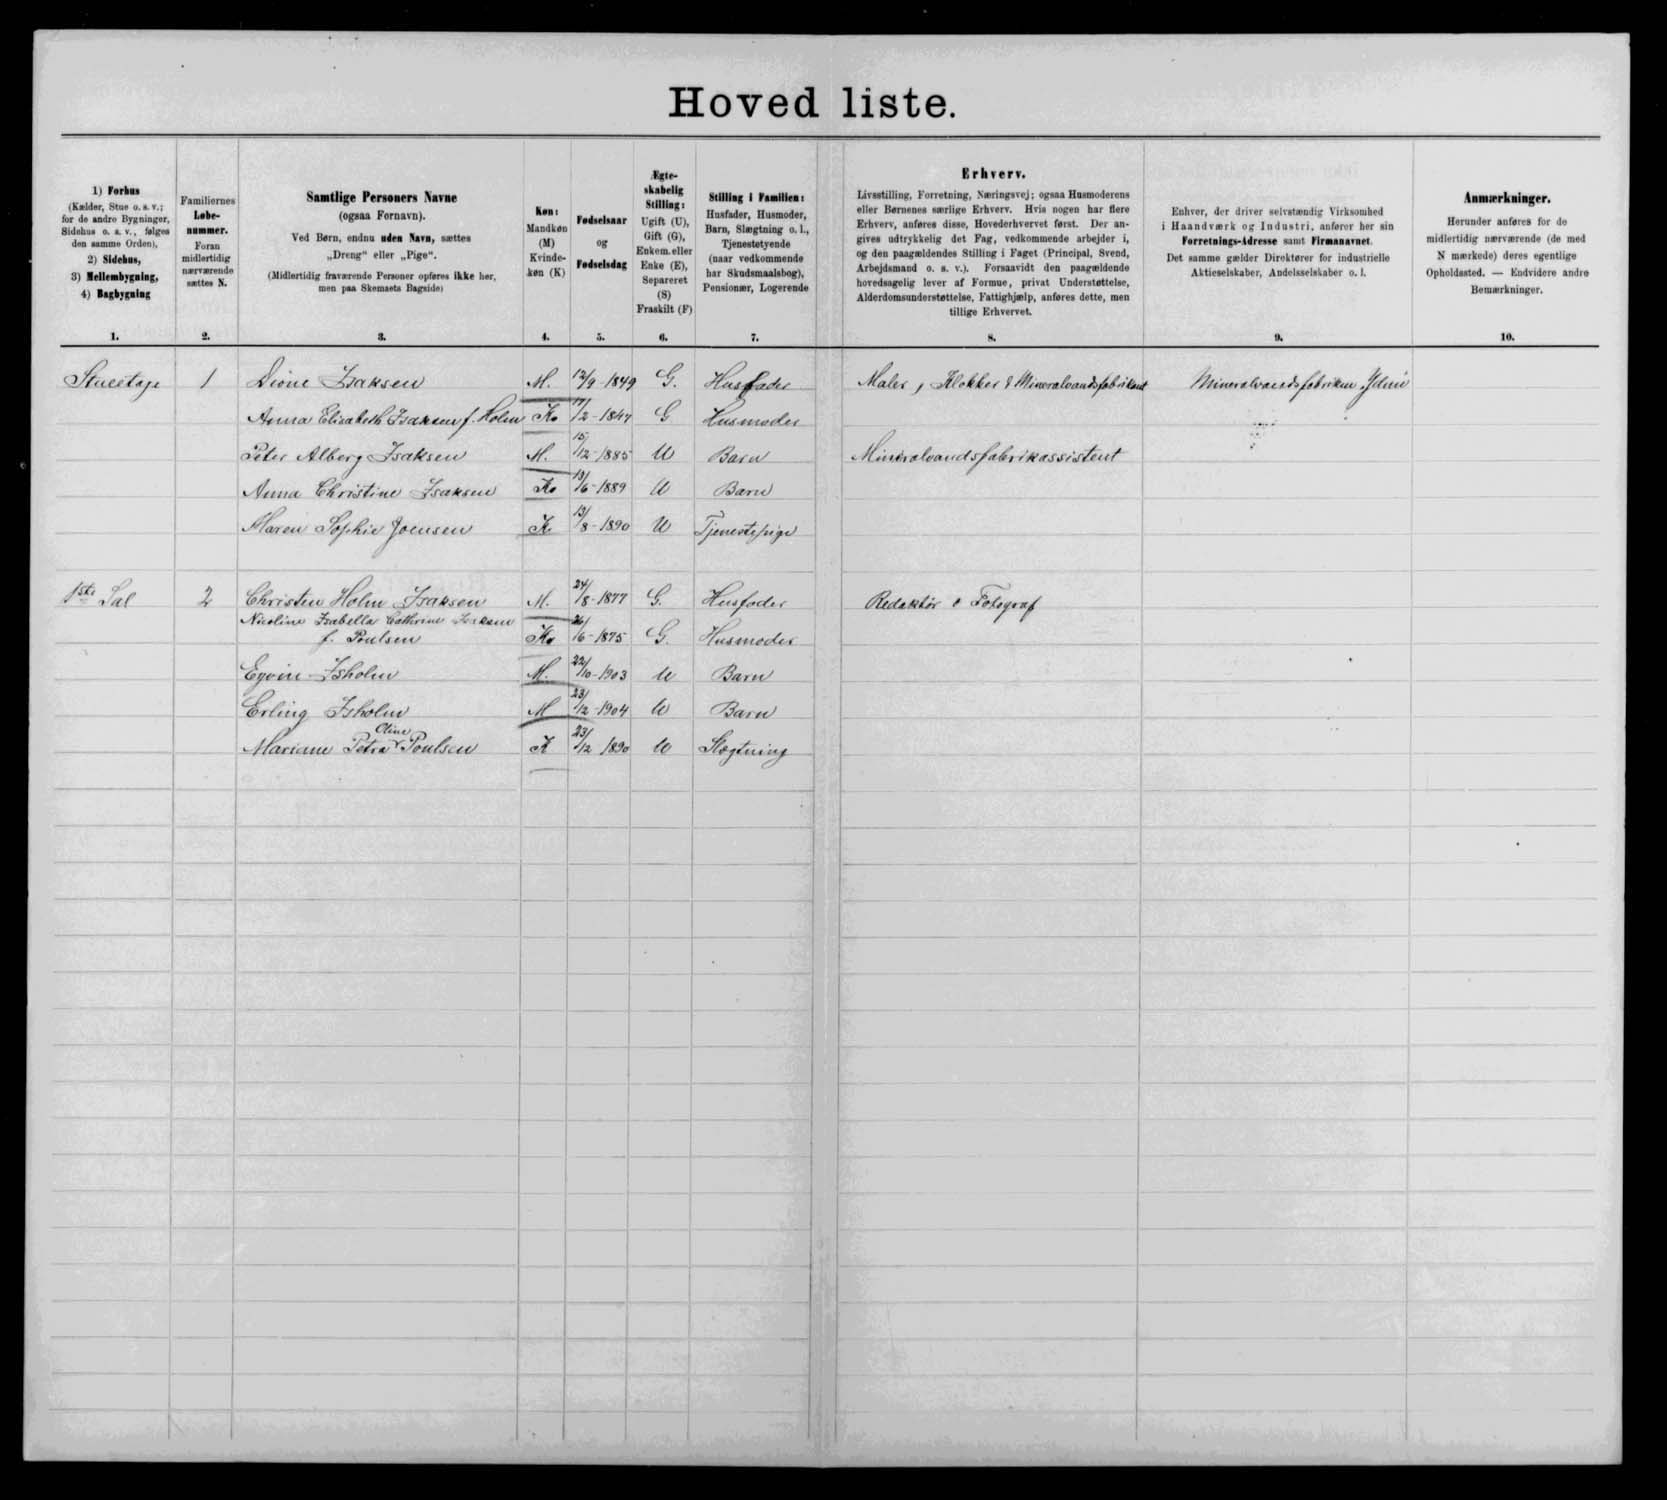 Hoved liste.
1) Forhus
(Kælder, Stue o. s. v.;
for de andre Bygninger,
Sidehus o. s. v., følges
den samme Orden),
2) Sidehus,
3) Mellembygning,
4) Bagbygning
1.
Familiernes
Løbe-
nummer.
Foran
midlertidig
nærværende
sættes N.
2.
Samtlige Personers Navne
(ogsaa Fornavn).
Ved Børn, endnu uden Navn, sættes
„Dreng“ eller „Pige“.
(Midlertidig fraværende Personer opføres ikke her,
men paa Skemaets Bagside)
3.
Køn:
Mandkøn
(M)
Kvinde-
køn (K)
4.
Fødselsaar
og
Fødselsdag
5.
Ægte-
skabelig
Stilling:
Ugift (U),
Gift (G),
Enkem. eller
Enke (E),
Separeret
(S)
Fraskilt (F)
6.
Stilling i Familien:
Husfader, Husmoder,
Barn, Slægtning o. l.,
Tjenestetyende
(naar vedkommende
har Skudsmaalsbog),
Pensionær, Logerende
7.
Erhverv.
Livsstilling, Forretning, Næringsvej; ogsaa Husmoderens
eller Børnenes særlige Erhverv. Hvis nogen har flere
Erhverv, anføres disse, Hovederhvervet først. Der an-
gives udtrykkelig det Fag, vedkommende arbejder i,
og den paagældendes Stilling i Faget (Principal, Svend,
Arbejdsmand o. s. v.). Forsaavidt den paagældende
hovedsagelig lever af Formue, privat Understøttelse,
Alderdomsunderstøttelse, Fattighjælp, anføres dette, men
tillige Erhvervet.
8.
Enhver, der driver selvstændig Virksomhed
i Haandværk og Industri, anfører her sin
Forretnings-Adresse samt Firmanavnet.
Det samme gælder Direktører for industrielle
Aktieselskaber, Andelsselskaber o. l.
9.
Anmærkninger.
Herunder anføres for de
midlertidig nærværende (de med
N mærkede) deres egentlige
Opholdssted. — Endvidere andre
Bemærkninger.
10.
Stueetage 1 Dione Isaksen M. 12/9-1849 G. Husfader Maler, Klokker & Mineralvandsfabrikant Mineralvandsfabriken
Anna Elisabeth Isaksen f. Holm K. 17/2-1847 G Husmoder
Peter Alberg Isaksen M. 15/12-1885 U Barn Mineralvandsfabrikassistent
Anna Christine Isaksen K. 13/6-1889 U Barn
Maren Sophie Joensen K. 13/8-1890 U Tjenestepige
1ste Sal 2 Christen Holm Isaksen M. 24/8-1877 G. Husfader Redaktør & Fotograf
Nicoline Isabella Cathrine Isaksen
f. Poulsen K. 26/6-1875 G. Husmoder
Eyvin Isholm M. 22/10-1903 U Barn
Erling Isholm M 23/12-1904 U Barn
Mariane Petra Oline Poulsen K 23/12 1890 U Slægtning